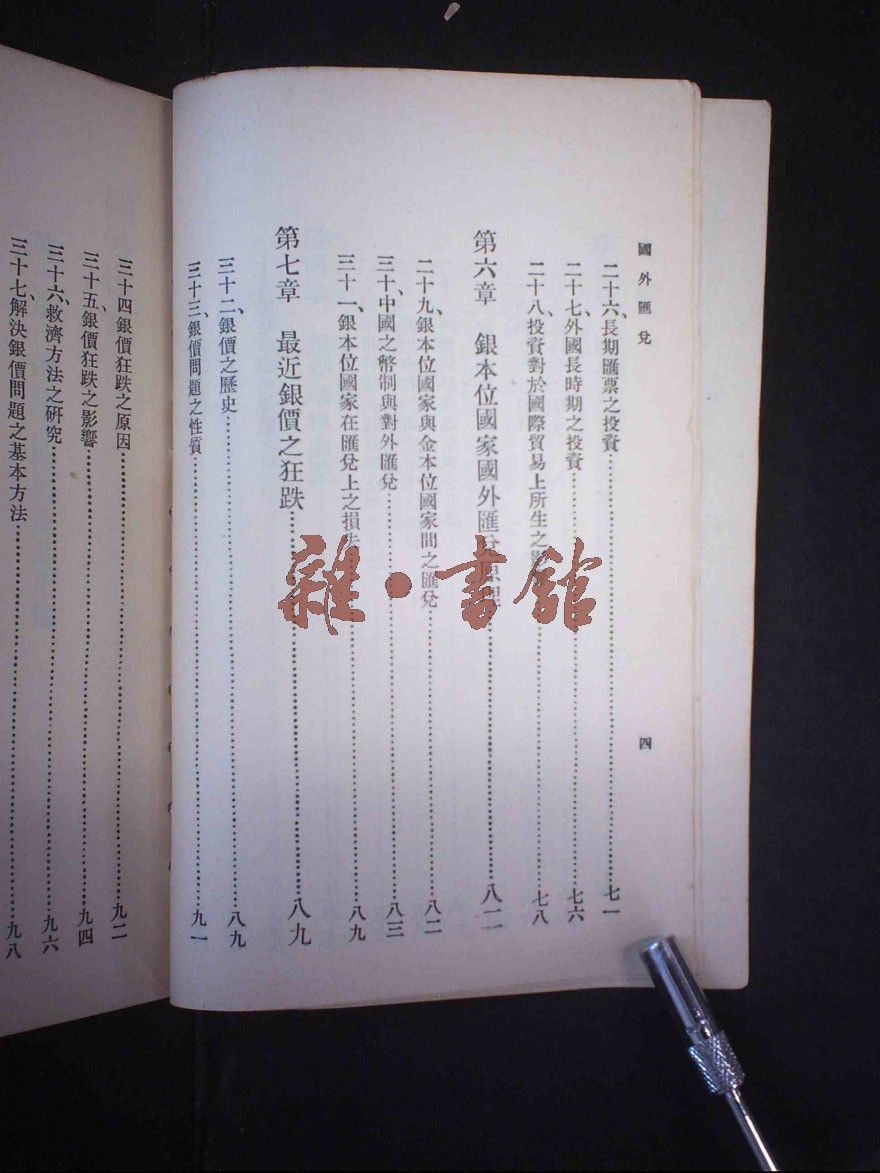 國外匯兌
四
二十六、長期匯票之投資……七一
二十七、外國長時期之投資……七六
二十八、投資對於國際貿易上所生之影……七八
第六章 銀本位國家國外匯兌原理……八二
二十九、銀本位國家與金本位國家間之匯兌……八二
三十、中國之幣制與對外匯兌……八三
三十一、銀本位國家在匯兌上之損失……八九
第七章 最近銀價之狂跌……八九
三十二、銀價之歷史……八九
三十三、銀價問題之性質……九一
三十四銀價狂跌之原因……九二
三十五、銀價狂跌之影響……九四
三十六、救濟方法之研究……九六
三十七、解決銀價問題之基本方法……九八
雜·書館